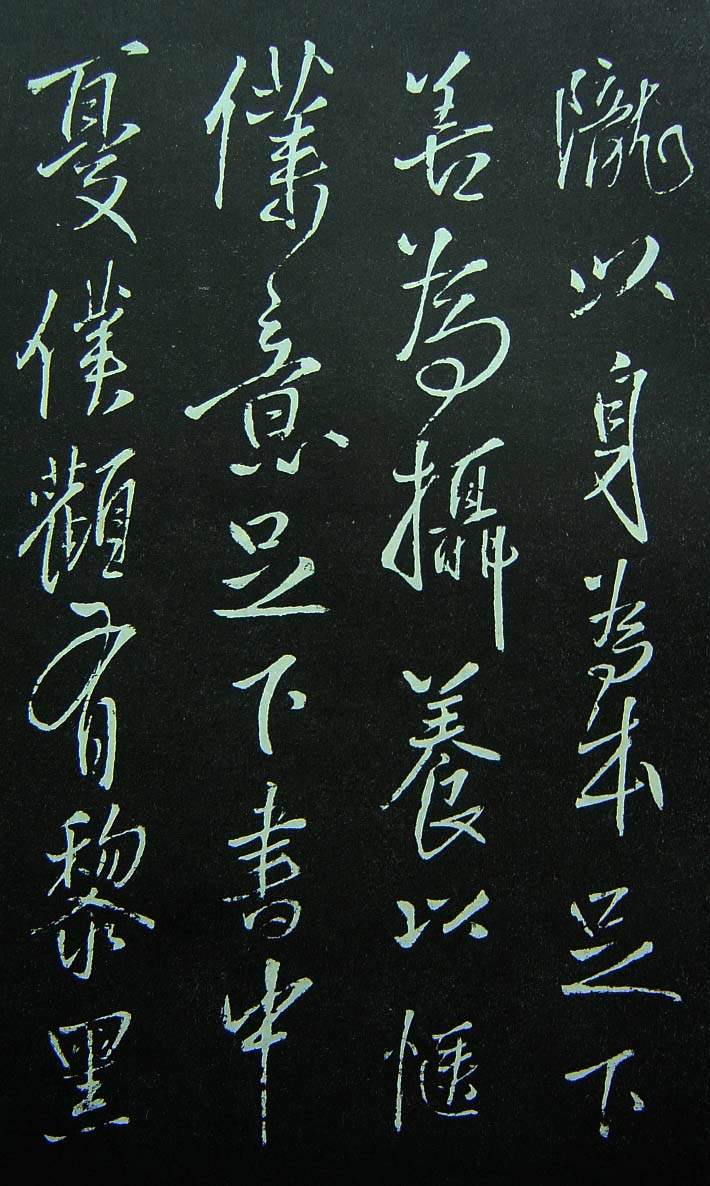 隴以身為本足下
善為攝養以愜
僕意足下書中
憂僕顴有黎黑